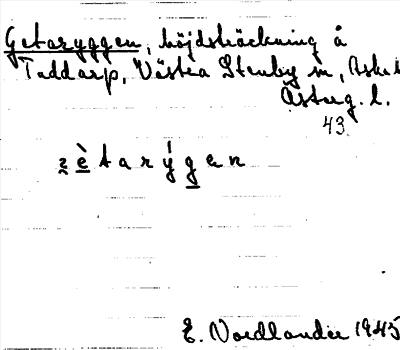 Getaryggen, höjdsträckning å
Taddarp, Västra Stenby sn, Aska
Österg. l.
43.
ʒ̱ è̱ t a r ý g̱ e n
E. Nordlander 1945